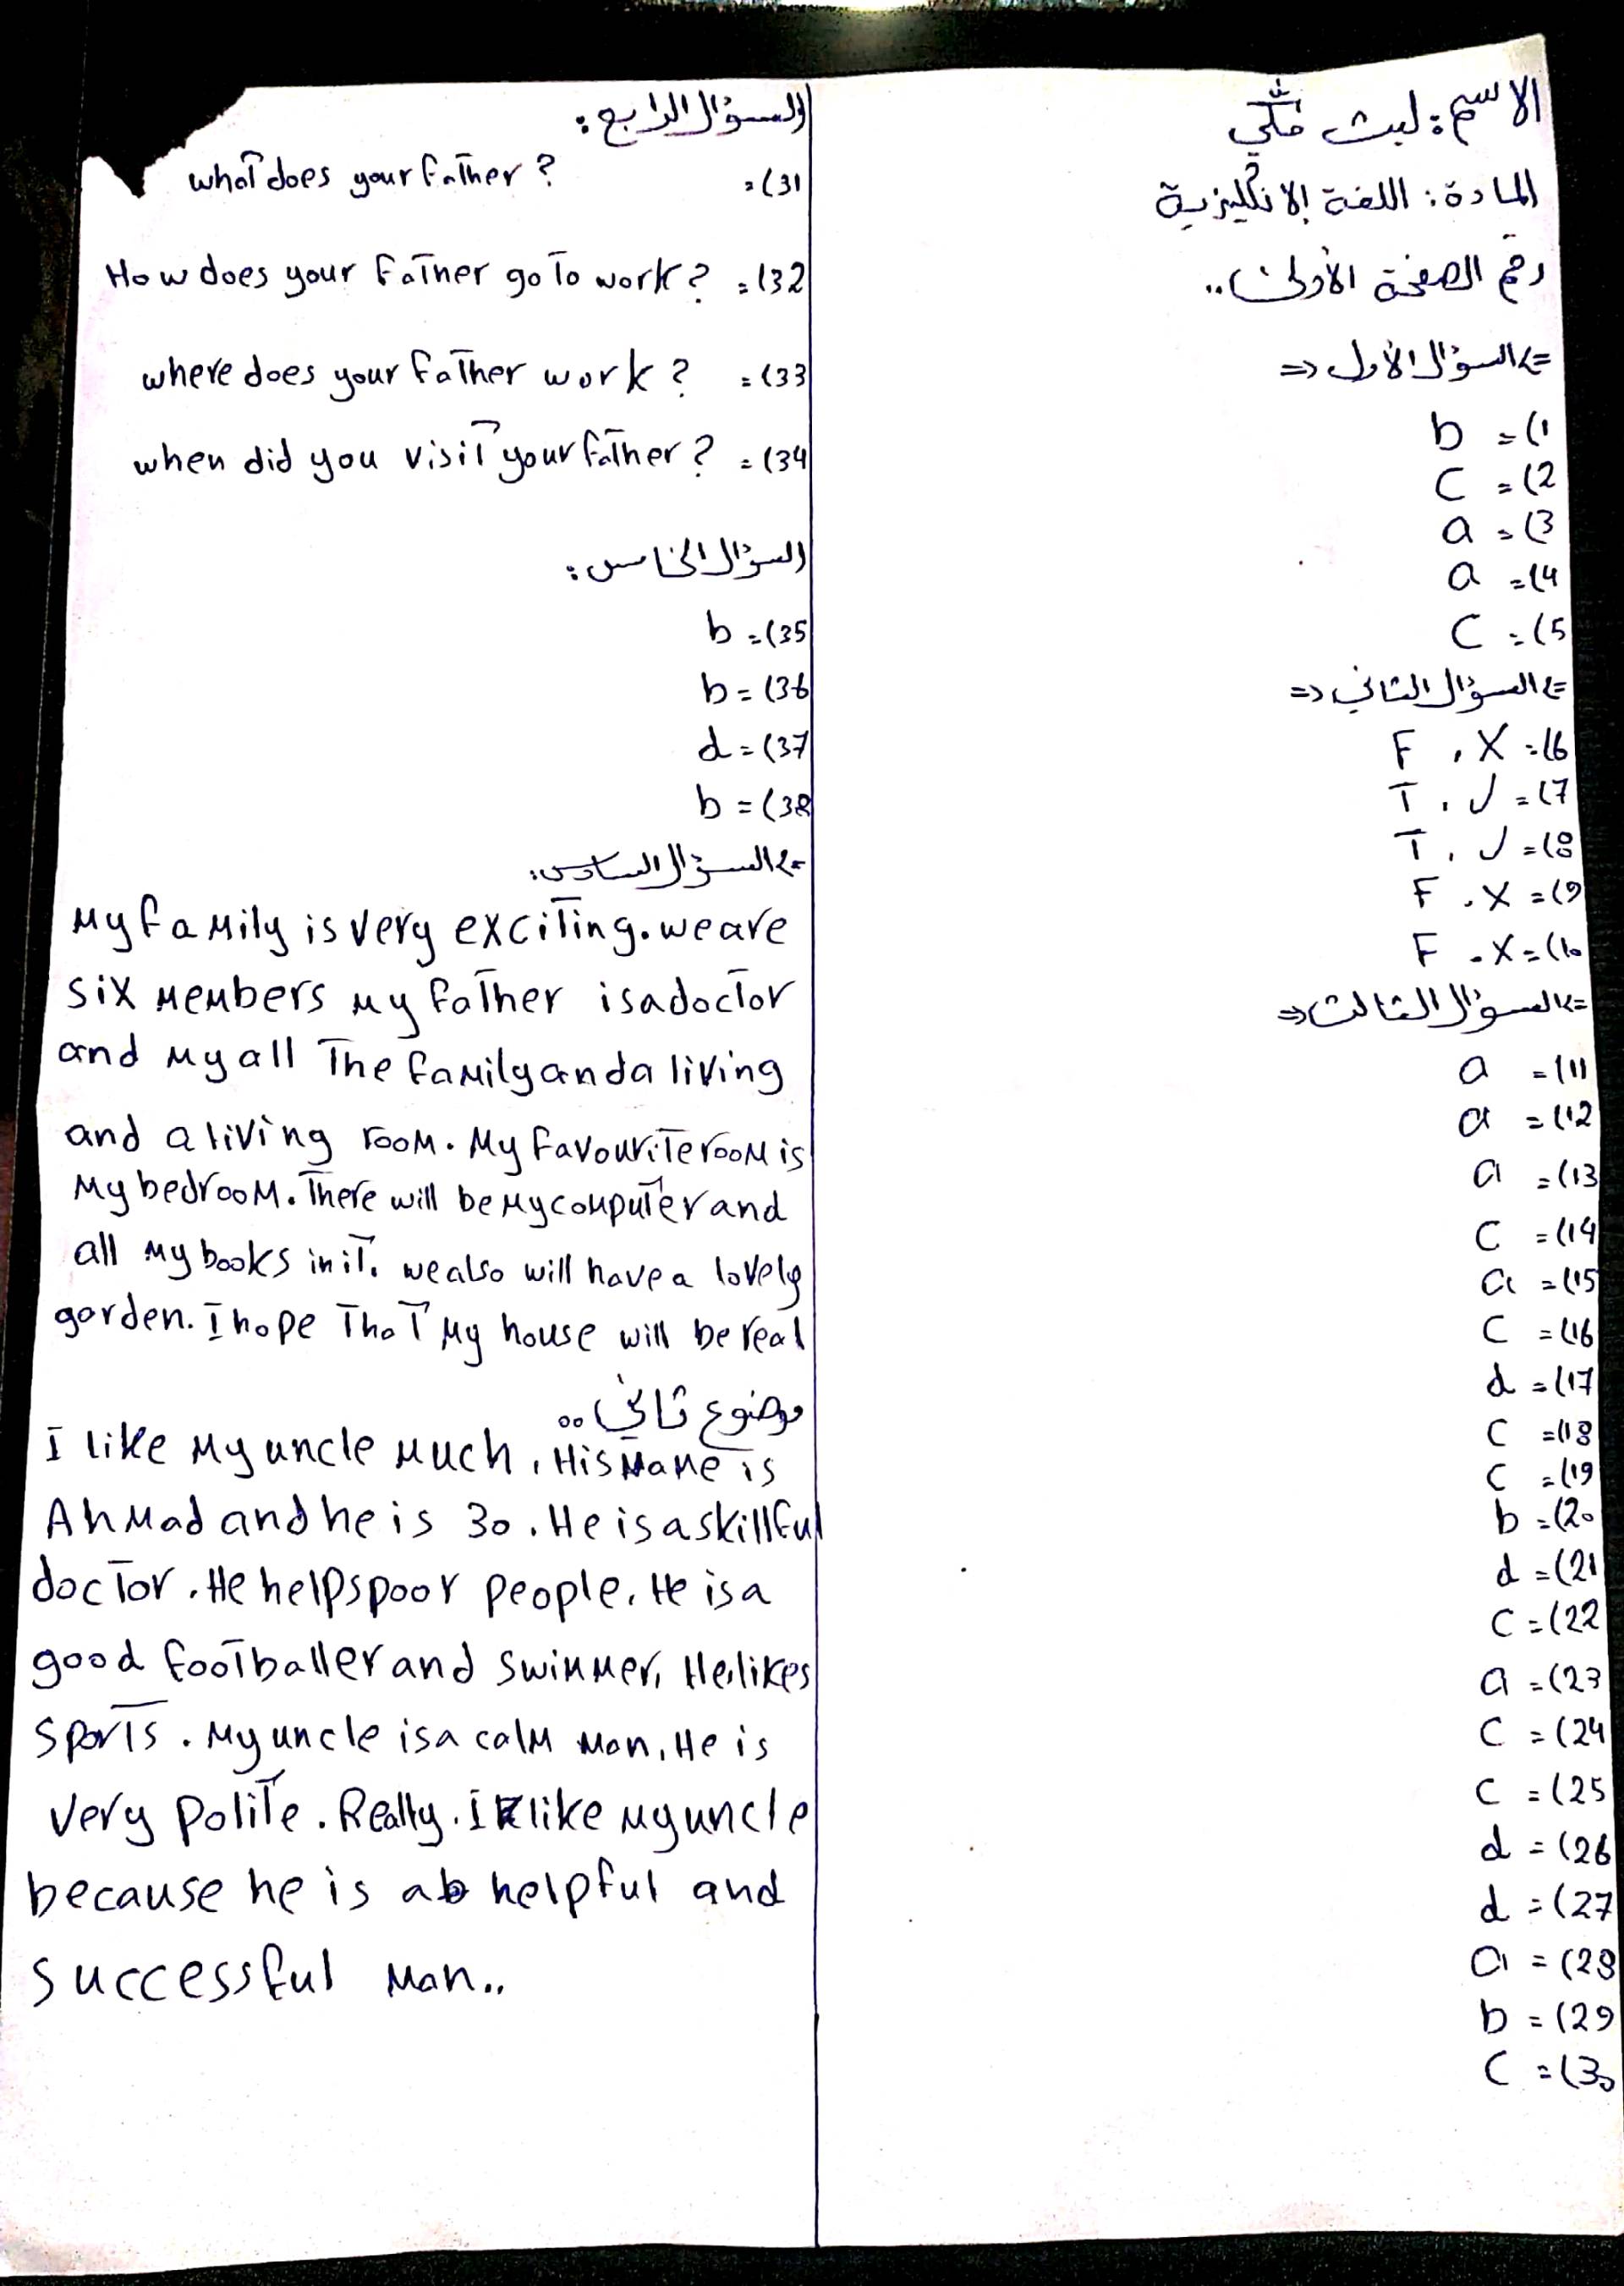 الاسم: ليث مكي
المادة: اللغة الانكليزية
رقم الصفحة الأولى..
=> السؤال الأول <=
b =(1
C =(2
a =(3
a =(4
C =(5
=> السؤال الثاني <=
F , X =(6
T , J =(7
T , J =(8
F , X =(9
F , X =(10
=> السؤال الثالث <=
a =(11
a =(12
a =(13
C =(14
a =(15
C =(16
d =(17
C =(18
C =(19
b =(20
d =(21
C =(22
a =(23
C =(24
C =(25
d =(26
d =(27
a =(28
b =(29
C =(30
السؤال الرابع:
what does your father ? =(31
How does your father go to work? =(32
where does your father work ? =(33
when did you visit your father? =(34
السؤال الخامس:
b =(35
b =(36
d =(37
b =(38
=> السؤال السادس:
My family is very exciting. we are
six members my father is a doctor
and my all the family and a living
and a living room. My favourite room is
My bedroom. There will be my computer and
all my books in it. we also will have a lovely
garden. I hope that my house will be real
موضوع ثاني..
I like my uncle much, His name is
Ahmad and he is 30. He is a skillful
doctor. He helps poor people. He is a
good footballer and swimmer, He likes
sports. My uncle is a calm man, He is
very polite. Really. I like my uncle
because he is ab helpful and
successful man..